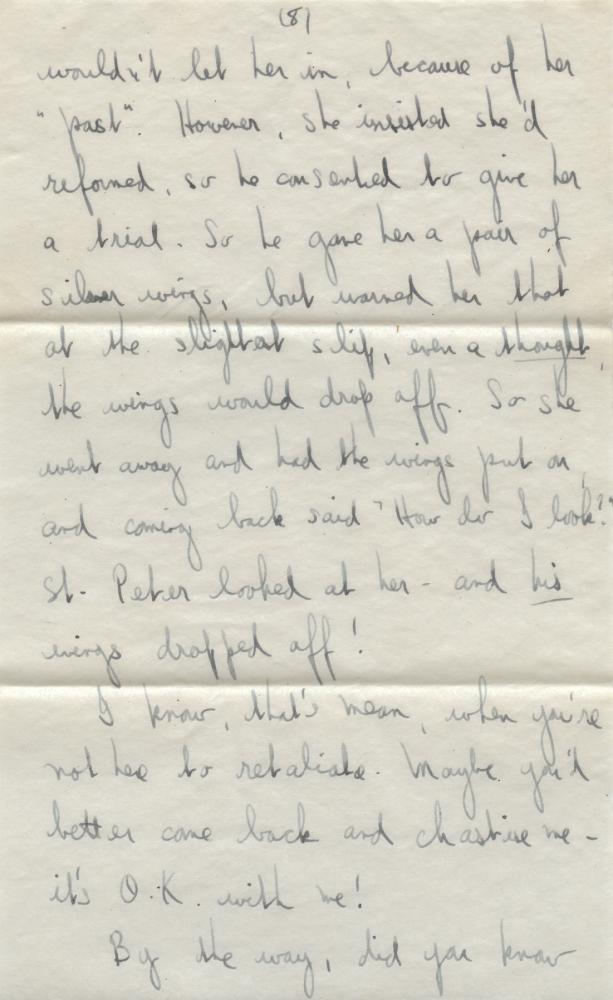 (8)
wouldn't let her in, because of her
"past". However, she insisted she'd
reformed, so he consented to give her
a trial. So he gave her a pair of
silver wings, but warned her that
at the slightest slip, even a thought,
the wings would drop off. So she
went away and had the wings put on,
and coming back said "How do I look?"
St. Peter looked at her - and his
wings dropped off!
I know, that's mean, when you're
not here to retaliate. Maybe you'd
better come back and chastise me -
it's O.K. with me!
By the way, did you know